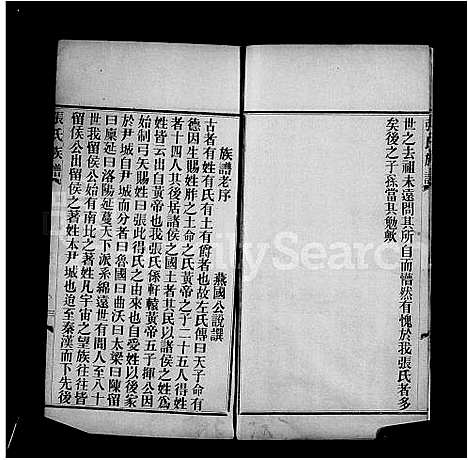 世之去祖未遠問其所自而懵然有愧於我張氏者多
矣後之子孫當其勉歟
族譜老序
燕國公說譔
古者有姓有氏有土有爵者也故左氏傳曰天子命有
德因生賜姓胙之土命之氏黃帝之子二十五人得姓
者十四人其後居諸侯之國土者其民以諸侯之姓為
姓皆云出自黃帝也我張氏係軒轅黃帝五子揮公因
始制弓矢賜姓曰張此得氏之由來也自受姓以後家
於尹城自尹城而分者曰魯國曰曲沃曰太梁曰陳留
曰廣延曰洛陽延蔓天下派系綿遠世有聞人至八十
世我留侯公始有南北之著姓凡宇宙之望族往往皆
留侯公出留侯之著姓本尹城也迨至秦漢而下先後
張氏族譜